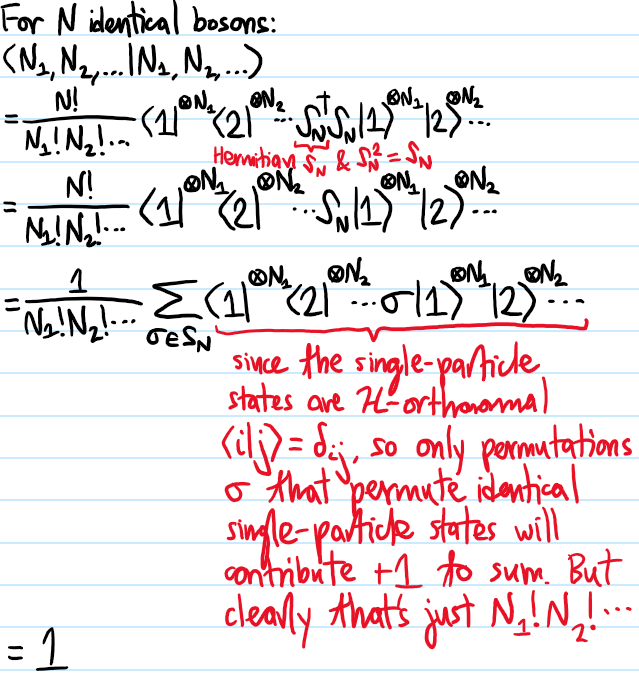 For N identical bosons:
⟨N₁, N₂, ...|N₁, N₂, ...⟩
= N!/(N₁!N₂!...) ⟨1|^⊗N₁ ⟨2|^⊗N₂ ... S_N† S_N |1⟩^⊗N₁ |2⟩^⊗N₂ ...
Hermitian S_N & S_N² = S_N
= N!/(N₁!N₂!...) ⟨1|^⊗N₁ ⟨2|^⊗N₂ ... S_N |1⟩^⊗N₁ |2⟩^⊗N₂ ...
= 1/(N₁!N₂!...) Σ_{σ∈S_N} ⟨1|^⊗N₁ ⟨2|^⊗N₂ ... σ |1⟩^⊗N₁ |2⟩^⊗N₂ ...
since the single-particle
states are ℋ-orthonormal
⟨i|j⟩ = δ_ij, so only permutations
σ that permute identical
single-particle states will
contribute +1 to sum. But
clearly that's just N₁!N₂!...
= 1